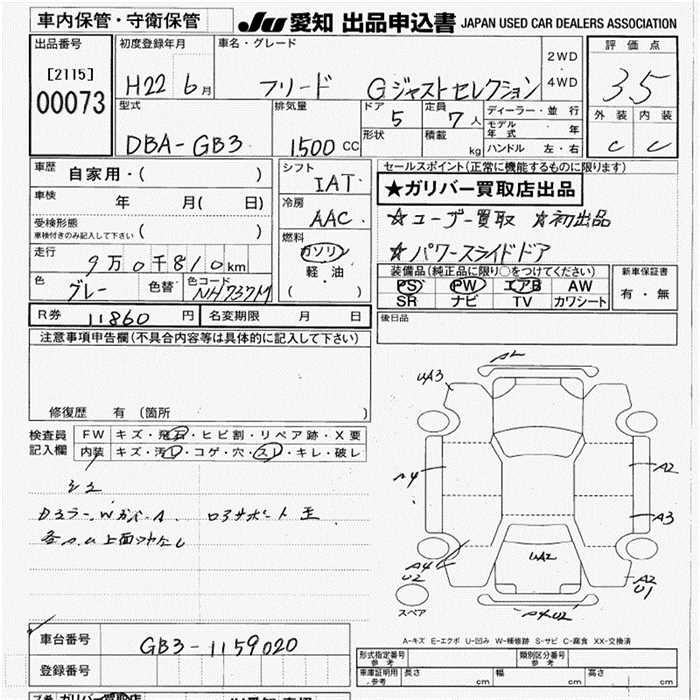 車内保管・守衛保管
JU 愛知 出品申込書 JAPAN USED CAR DEALERS ASSOCIATION
出品番号
[2115]
00073
初度登録年月
H22 6月
車名・グレード
フリード Gジャストセレクション
2WD
4WD
評価点
3.5
外装 内装
C C
型式
DBA-GB3
排気量
1500 CC
ドア
5
形状
定員
7人
積載
kg
ディーラー・並行
モデル年式 ・ 年
ハンドル 左・右
車歴 自家用・( )
車検 年 月( 日)
受検形態
車検付きのみ記入して下さい ( )
走行
9万0千810km
色
グレー
色替
色コード
NH737M
シフト
IAT
冷房
AAC
燃料
ガソリン
軽・油
( )
セールスポイント(正常に機能するものに限ります)
★ガリバー買取店出品
☆ユーザー買取 ☆初出品
☆パワースライドドア
装備品(純正品に限り○をつけてください)
PS PW エアB AW
SR ナビ TV カワシート
新車保証書
有・無
R券 11860 円
名変期限 月 日
後日品
注意事項申告欄(不具合内容等は具体的に記入して下さい)
修復歴 有 (箇所 )
検査員
記入欄
FW キズ・飛石・ヒビ割・リペア跡・X要
内装 キズ・汚レ・コゲ・穴・スレ・キレ・破レ
UA3
A4
A2
A3
A4
U2
UA2
A2
U1
A4U2
スペア
A-キズ E-エクボ U-凹み W-補修跡 S-サビ C-腐食 XX-交換済
車台番号 GB3-1159020
登録番号
形式指定番号
参考
類別区分番号
参考
車庫証明用
参考
長さ cm 幅 cm 高さ cm